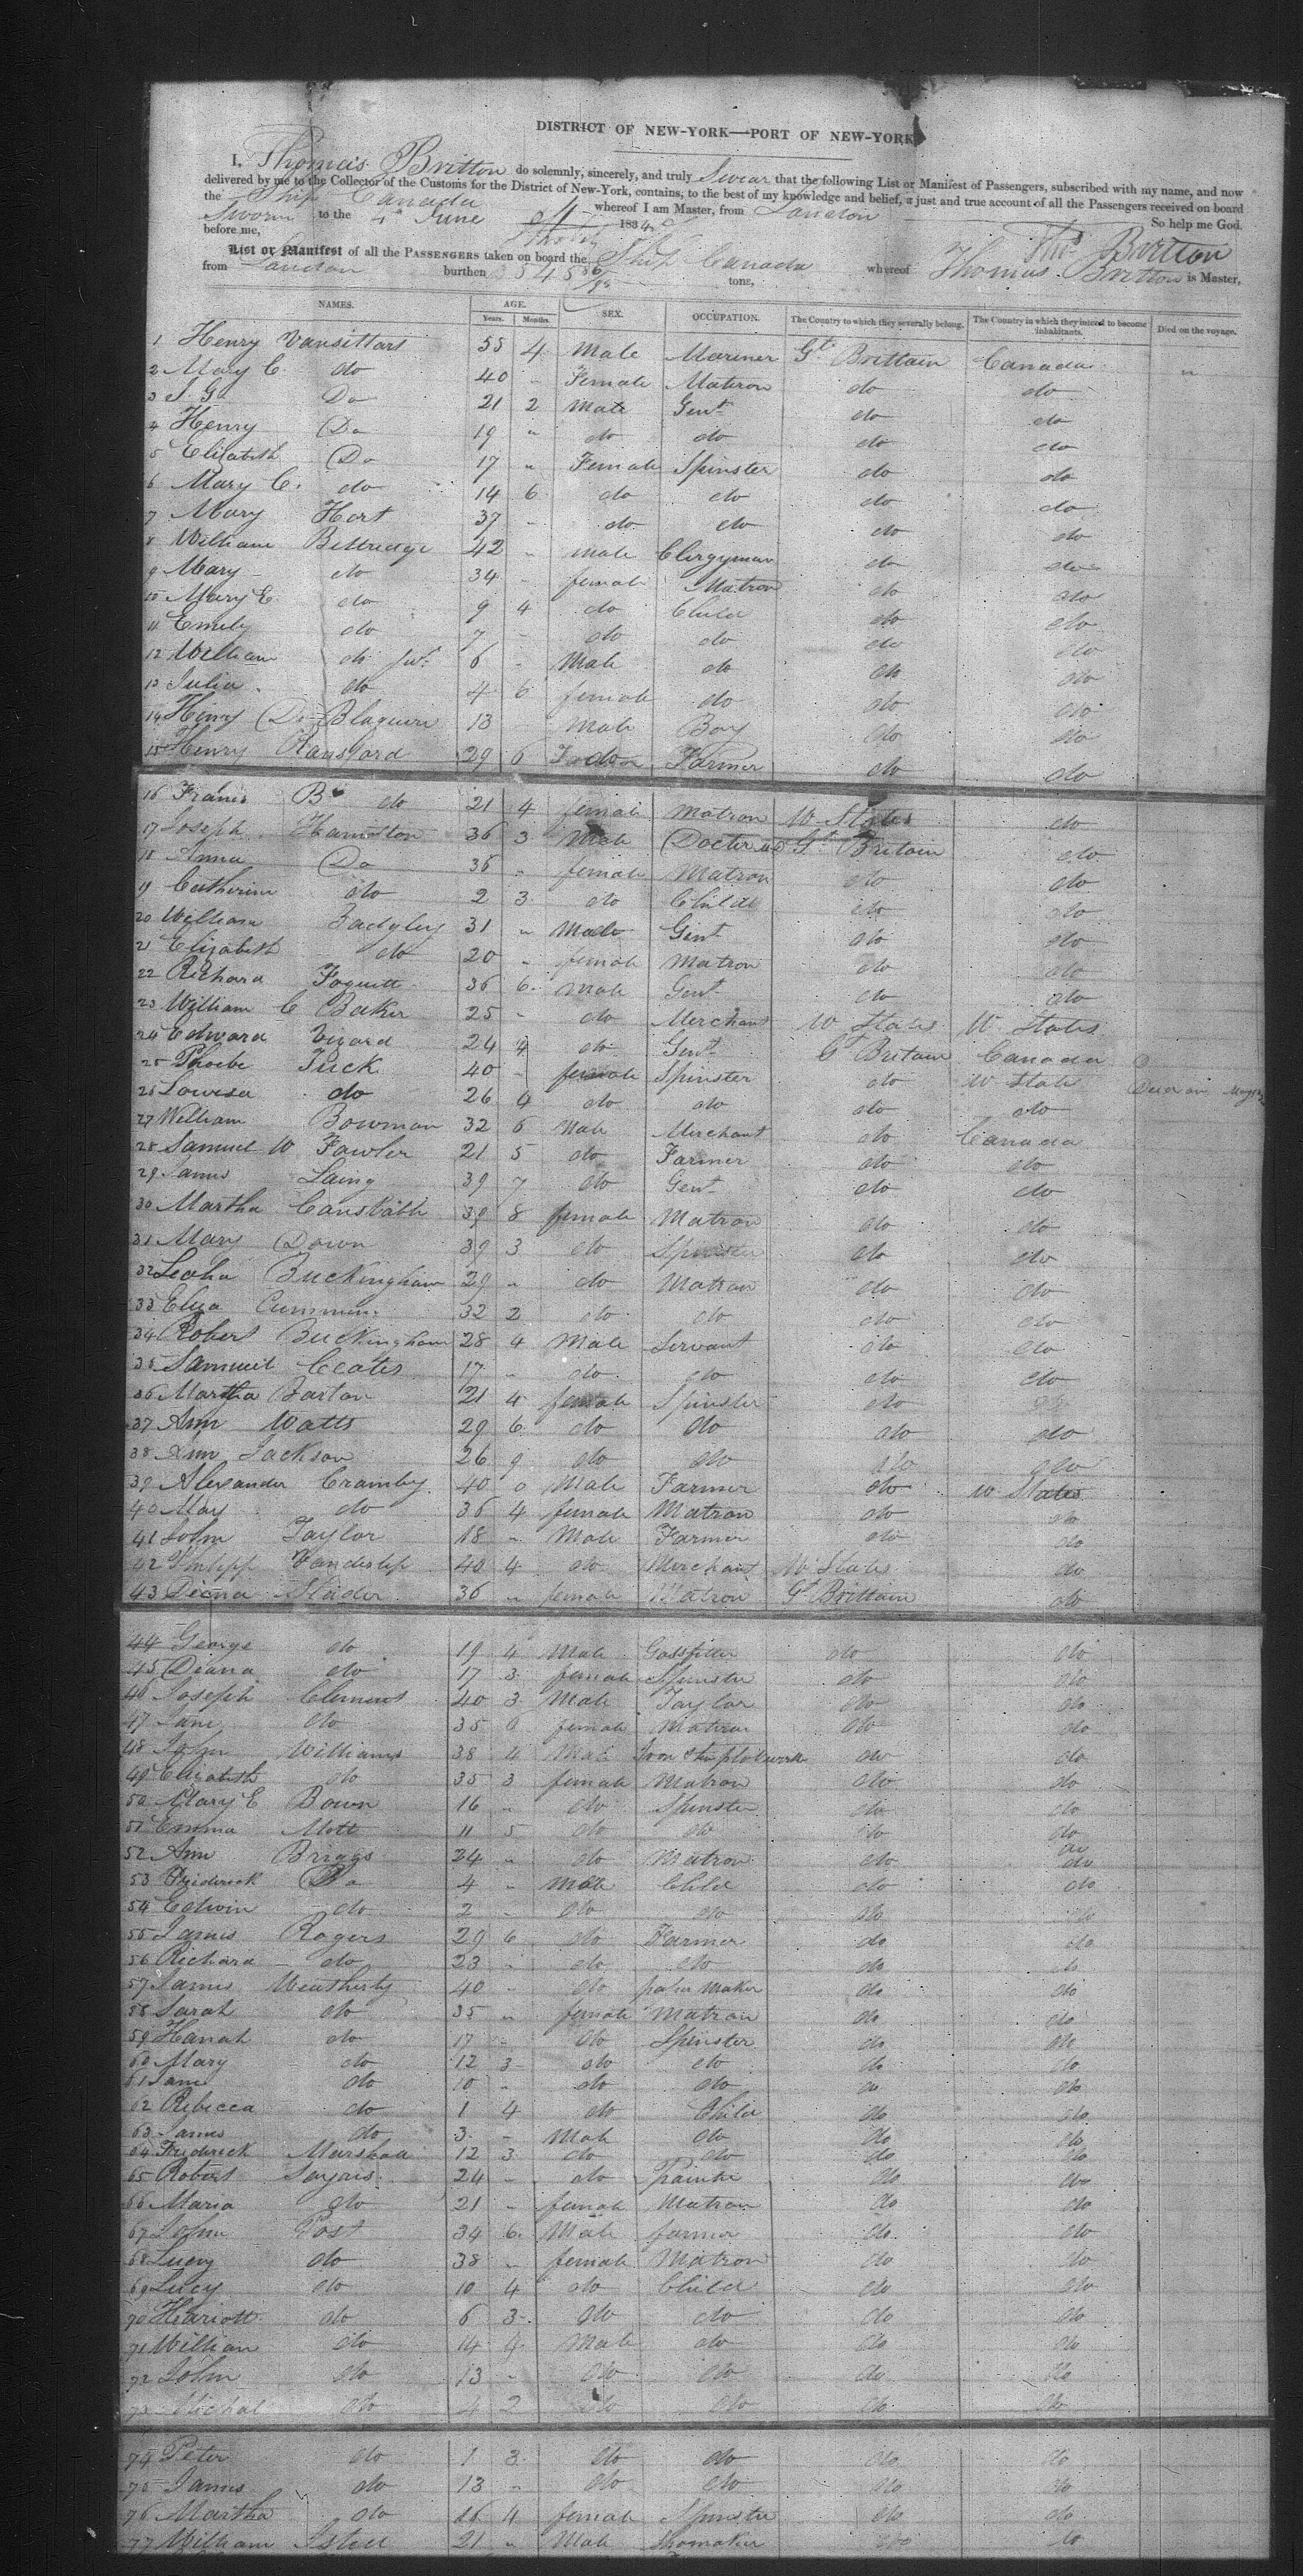 DISTRICT OF NEW-YORK—PORT OF NEW-YORK
I, Thomas Britton do solemnly, sincerely, and truly Swear that the following List or Manifest of Passengers, subscribed with my name, and now
delivered by me to the Collector of the Customs for the District of New-York, contains, to the best of my knowledge and belief, a just and true account of all the Passengers received on board
the Ship Canada whereof I am Master, from London
Sworn to the 4 June 183 So help me God.
before me, Thos Britton
List or Manifest of all the PASSENGERS taken on board the Ship Canada whereof Thomas Britton is Master,
from London burthen tons,
NAMES. AGE. SEX. OCCUPATION. The Country to which they severally belong. The Country in which they intend to become inhabitants. Died on the voyage.
Years. Months.
1 Henry Vansittart 55 4 Male Mariner Gt Brittain Canada "
2 Mary C. do 40 - Female Matron do do
3 J G Do 21 2 Male Gent do do
4 Henry Do 19 " do do do do
5 Elizabeth Do 17 " Female Spinster do do
6 Mary C. do 14 6 do do do do
7 Mary Hart 37 - do do do do
8 William Bettredge 42 " male Clergyman do do
9 Mary do 34 - female Matron do do
10 Mary E. do 9 4 do Child do do
11 Emily do 7 - do do do do
12 William do Jur 6 - Male do do do
13 Julia do 4 6 female do do do
14 Henry De Blaquire 13 male Boy do do
15 Henry Ransford 29 6 do Farmer do do
16 Frances B do 21 4 female matron U States do
17 Joseph Hamilton 36 3 Male Docter MD Gt Britain do
18 Anna Do 35 " female Matron do do
19 Catherine do 2 3 do Child do do
20 William Badgley 31 " Male Gent do do
21 Elizabeth do 20 " female Matron do do
22 Richard Foquett 36 6 Male Gent do do
23 William C Baker 25 - do Merchant U States U States
24 Edward Vigard 24 4 do Gent Gt Britain Canada
25 Phoebe Tuck 40 - female Spinster do U State Died on May
26 Lowisa do 26 4 do do do do
27 William Bowman 32 6 Male Merchant do Canada
28 Samuel W Fowler 21 5 do Farmer do do
29 James Laing 39 7 do Gent do do
30 Martha Constable 39 8 female Matron do do
31 Mary Down 39 3 do Spinster do do
32 Leaha Buckingham 29 " do Matron do do
33 Eliza Cummins 32 2 do do do do
34 Robert Buckingham 28 4 Male Servant do do
35 Samuel Coates 17 " do do do do
36 Martha Barton 21 4 female Spinster do do
37 Ann Watts 29 6 do do do do
38 Ann Jackson 26 9 do do do do
39 Alexander Cramby 40 0 Male Farmer do U States
40 May do 36 4 female Matron do do
41 John Taylor 18 " Male Farmer do do
42 Phillipp Vandeslip 40 4 do Merchant U States do
43 Diana Slader 36 " female Matron Gt Brittain do
44 George do 19 4 Male Gassfitter do do
45 Diana do 17 3 female Spinster do do
46 Joseph Clemens 40 3 Male Taylor do do
47 Jane do 35 6 female Matron do do
48 John Williams 38 4 Male Iron & tin plate worker do do
49 Elizabeth do 35 3 female Matron do do
50 Mary E Bown 16 " do Spinster do do
51 Emma Mott 11 5 do do do do
52 Ann Briggs 24 " do Matron do do
53 Frederick Do 4 " male Child do do
54 Edwin do 2 - do do do do
55 James Rogers 29 6 do Farmer do do
56 Richard do 23 " do do do do
57 James Meatherly 40 - do paper Maker do do
58 Sarah do 35 " female Matron do do
59 Hanah do 17 - do Spinster do do
60 Mary do 12 3 do do do do
61 Jane do 10 " do do do do
62 Rebecca do 1 4 do Child do do
63 James do 3 - Male do do do
64 Frederick Marshall 12 3 do do do do
65 Robert Sayris 24 - do Painter do do
66 Maria do 21 - female Matron do do
67 John Post 34 6 Male farmer do do
68 Lucy do 38 " female Matron do do
69 Lucy do 10 4 do Child do do
70 Hariott do 6 3 do do do do
71 William do 14 9 Male do do do
72 John do 13 - do do do do
73 Michal do 4 2 do do do do
74 Peter do 1 3 do do do do
75 James do 13 - do do do do
76 Martha do 16 4 female Spinster do do
77 William Isted 21 " Male Shomaker do do